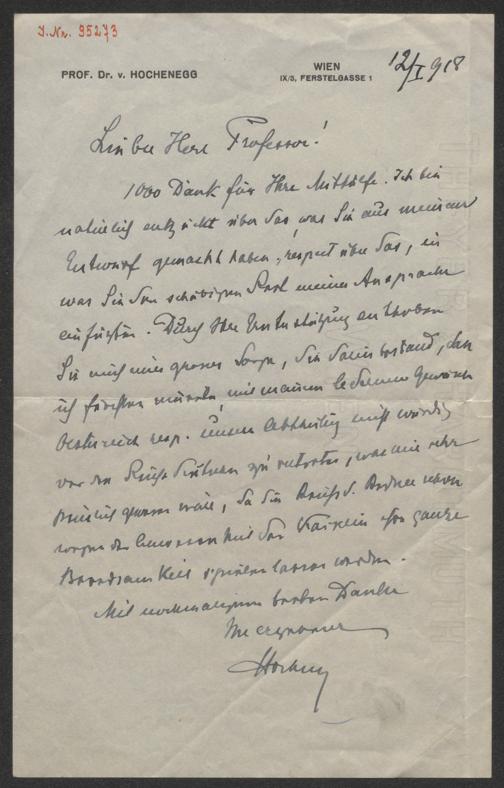 J.Nr. 95273
PROF. Dr. v. HOCHENEGG
WIEN
IX/3, FERSTELGASSE 1
12/I 918
Lieber Herr Professor!
1000 Dank für Ihre Mithülfe. Ich bin
natürlich entzückt über das was Sie aus meinem
Entwurf gemacht haben, respect über das, in
was Sie den schäbigen Rest meiner Ansprache
einfügten. Durch Ihre Unterstützung entheben
Sie mich einer grossen Sorge, die darin bestand, dass
ich fürchten musste, mit meinem ledernen
Oesterreich resp. unsere Abtheilung nicht würdig
vor den zu vertreten, was mir sehr
peinlich gewesen wäre, da die
wegen der Anwesenheit der Kaiserin ihre ganze
Beredsamkeit spielen lassen werden.
Mit nochmaligem besten Danke
Ihr ergebener
Hochenegg